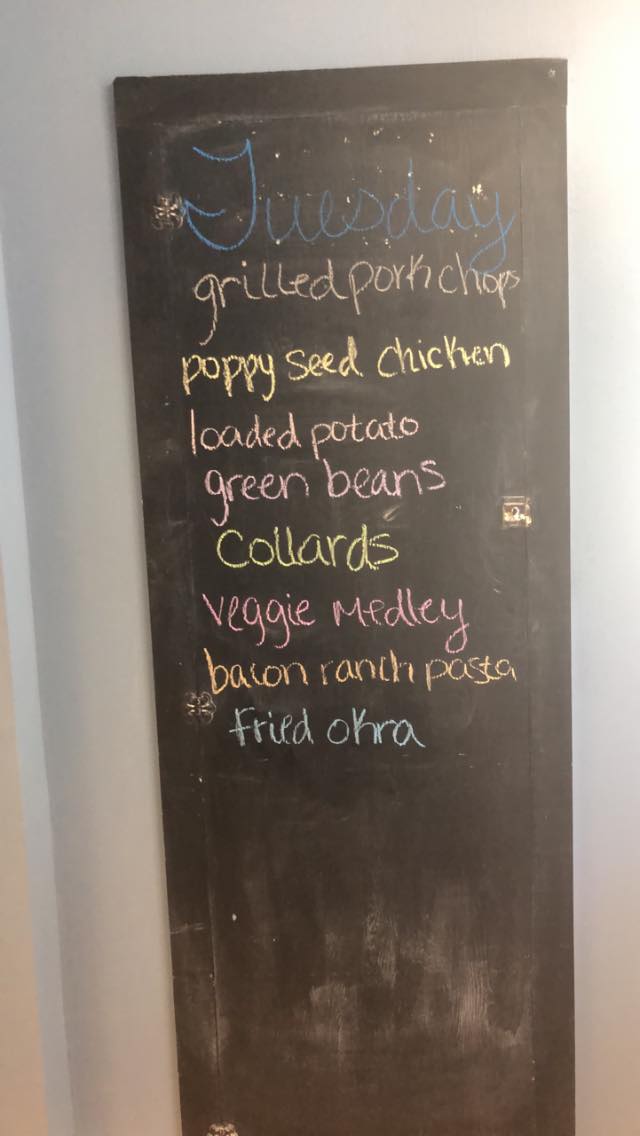 Tuesday
grilled pork chops
poppy seed chicken
loaded potato
green beans
Collards
veggie Medley
bacon ranch pasta
fried okra